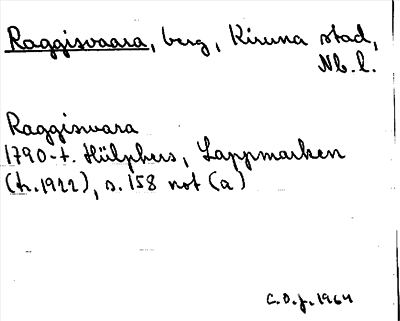 Raggisvaara, berg, Kiruna stad,
Nb. l.
Raggiswara
1790-t. Hülphers, Lappmarken
(tr. 1922), s. 158 not (a)
C.O.J. 1964